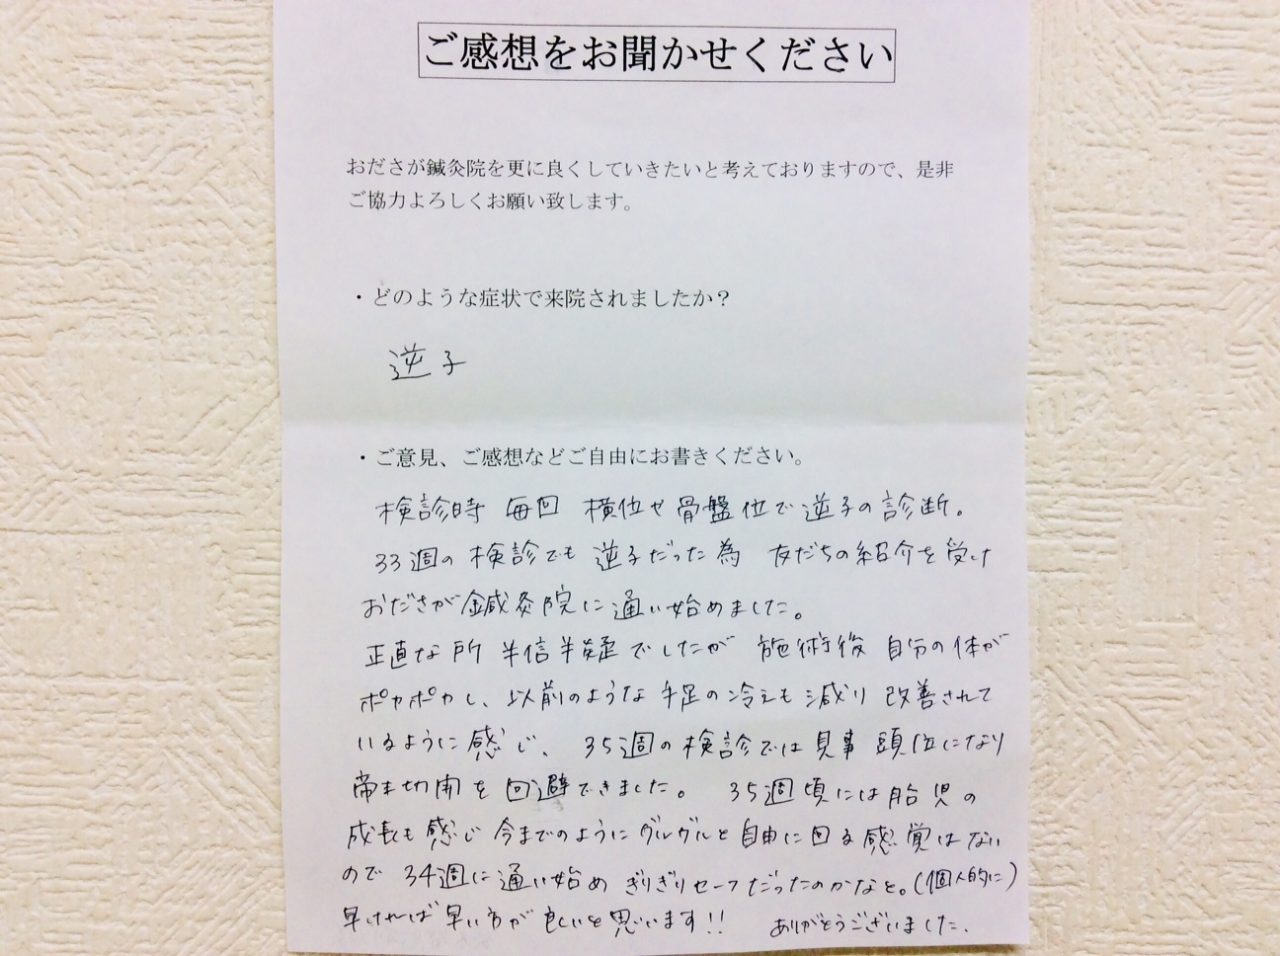 ご感想をお聞かせください
おださが鍼灸院を更に良くしていきたいと考えておりますので、是非
ご協力よろしくお願い致します。
・どのような症状で来院されましたか？
逆子
・ご意見、ご感想などご自由にお書きください。
検診時 毎回 横位や骨盤位で逆子の診断。
33週の検診でも逆子だった為 友だちの紹介を受け
おださが鍼灸院に通い始めました。
正直な所 半信半疑でしたが 施術後 自分の体が
ポカポカし、以前のような手足の冷えも減り 改善されて
いるように感じ、 35週の検診では見事 頭位になり
帝王切開を回避できました。 35週頃には胎児の
成長も感じ 今までのようにグルグルと自由に回る感覚はない
ので 34週に通い始め ぎりぎりセーフだったのかなと。(個人的に)
早ければ早い方が良いと思います!! ありがとうございました、